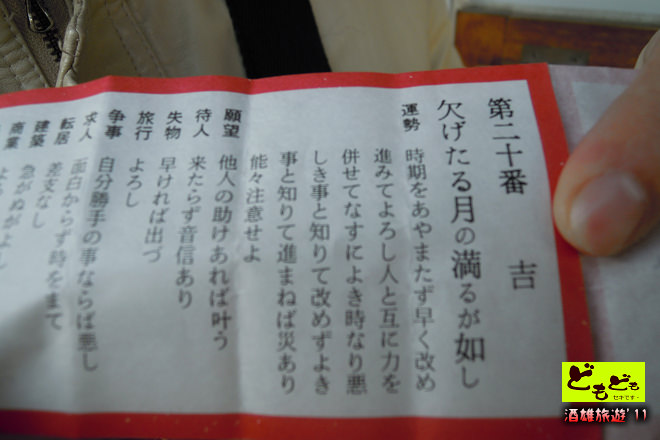 第二十番 吉
欠げたる月の満るが如し
運勢 時期をあやまたず早く改め
進みてよろし人と互に力を
併せてなすによき時なり悪
しき事と知りて改めずよき
事と知りて進まねば災あり
能々注意せよ
願望 他人の助けあれば叶う
待人 来たらず音信あり
失物 早ければ出づ
旅行 よろし
争事 自分勝手の事ならば悪し
求人 面白からず時をまて
転居 差支なし
建築 急がぬがよし
商業
どもども
セキです
酒雄旅遊'11